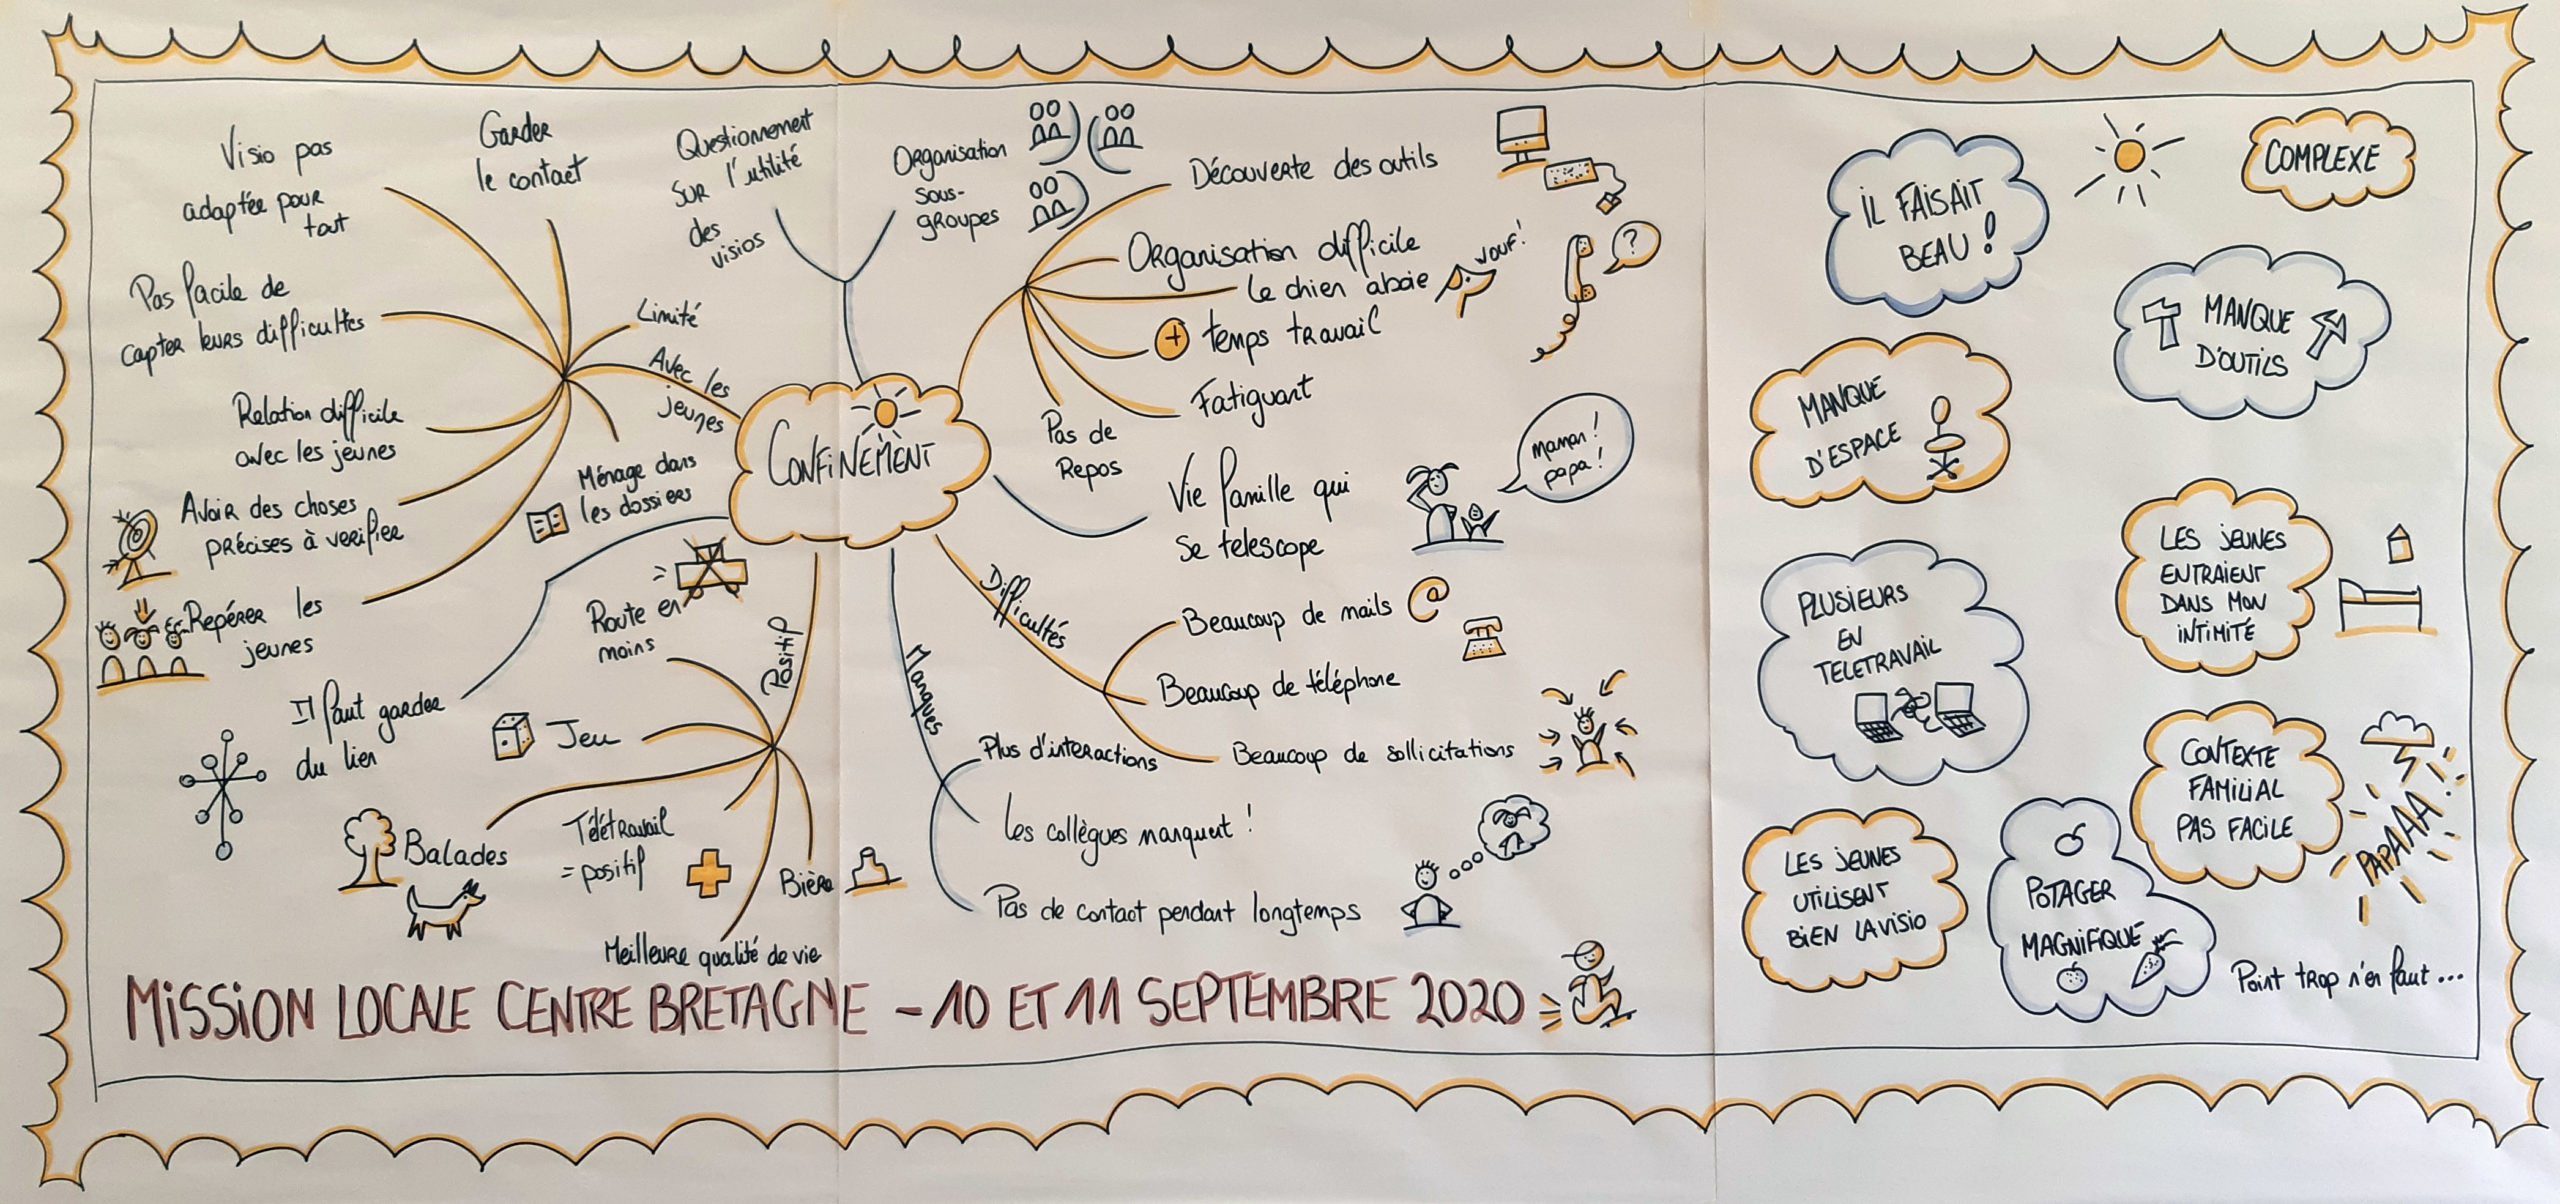 Visio pas
adaptée pour
tout
Garder
le contact
Questionnement
sur l'utilité
des
visios
Organisation
sous-
groupes
Pas facile de
capter leurs difficultés
Limité
Avec les
jeunes
Relation difficile
avec les jeunes
Avoir des choses
précises à verifier
Repérer les
jeunes
CONFINEMENT
Découverte des outils
Organisation difficile
Le chien aboie
wouf!
?
+ temps travail
Fatiguant
Pas de
Repos
Vie famille qui
se telescope
maman!
papa!
Ménage dans
les dossiers
Il faut garder
du lien
Positif
Route en
moins
Jeu
Balades
Télétravail
= positif
Bière
Meilleure qualité de vie
Manques
Plus d'interactions
Les collègues manquent !
Pas de contact pendant longtemps
Difficultés
Beaucoup de mails @
Beaucoup de téléphone
Beaucoup de sollicitations
MISSION LOCALE CENTRE BRETAGNE - 10 ET 11 SEPTEMBRE 2020
IL FAISAIT
BEAU !
COMPLEXE
MANQUE
D'OUTILS
MANQUE
D'ESPACE
LES JEUNES
ENTRAIENT
DANS MON
INTIMITÉ
PLUSIEURS
EN
TELETRAVAIL
CONTEXTE
FAMILIAL
PAS FACILE
PAPAAA!
LES JEUNES
UTILISENT
BIEN LA VISIO
POTAGER
MAGNIFIQUE
Point trop n'en faut...